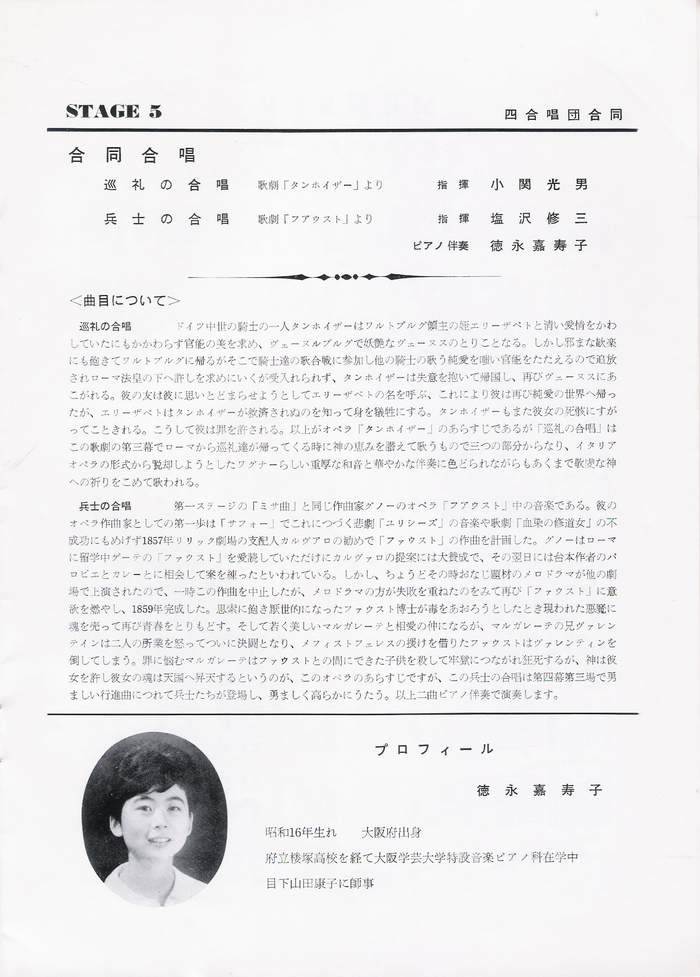 STAGE 5
四合唱団合同
合同合唱
巡礼の合唱 歌劇「タンホイザー」より 指揮 小関光男
兵士の合唱 歌劇「フアウスト」より 指揮 塩沢修三
ピアノ伴奏 徳永嘉寿子
＜曲目について＞
巡礼の合唱 ドイツ中世の騎士の一人タンホイザーはワルトブルグ領主の姪エリーザベトと清い愛情をかわ
していたにもかかわらず官能の美を求め、ヴェーヌルブルグで妖艶なヴェーヌスのとりことなる。しかし邪まな歓楽
にも飽きてワルトブルグに帰るがそこで騎士達の歌合戦に参加し他の騎士の歌う純愛を嗤い官能をたたえるので追放
されローマ法皇の下へ許しを求めにいくが受入れられず、タンホイザーは失意を抱いて帰国し、再びヴェーヌスにあ
こがれる。彼の友は彼に思いとどまらせようとしてエリーザベトの名を呼ぶ、これにより彼は再び純愛の世界へ帰っ
たが、エリーザベトはタンホイザーが救済されぬのを知って身を犠牲にする。タンホイザーもまた彼女の死骸にすが
ってこときれる。こうして彼は罪を許される。以上がオペラ「タンホイザー」のあらすじであるが「巡礼の合唱」は
この歌劇の第三幕でローマから巡礼達が帰ってくる時に神の恵みを讃えて歌うもので三つの部分からなり、イタリア
オペラの形式から脱却しようとしたワグナーらしい重厚な和音と華やかな伴奏に色どられながらもあくまで敬虔な神
への祈りをこめて歌われる。
兵士の合唱 第一ステージの「ミサ曲」と同じ作曲家グノーのオペラ「フアウスト」中の音楽である。彼の
オペラ作曲家としての第一歩は「サフォー」でこれにつづく悲劇「ユリシーズ」の音楽や歌劇「血染の修道女」の不
成功にもめげず1857年リリック劇場の支配人カルヴアロの勧めで「ファウスト」の作曲を計画した。グノーはローマ
に留学中ゲーテの「ファウスト」を愛読していただけにカルヴァロの提案には大賛成で、その翌日には台本作者のバ
ロビエとカレーとに相会して案を練ったといわれている。しかし、ちょうどその時おなじ題材のメロドラマが他の劇
場で上演されたので、一時この作曲を中止したが、メロドラマの方が失敗を重ねたのをみて再び「ファウスト」に意
欲を燃やし、1859年完成した。思索に飽き厭世的になったファウスト博士が毒をあおろうとしたとき現われた悪魔に
魂を売って再び青春をとりもどす。そして若く美しいマルガレーテと相愛の仲になるが、マルガレーテの兄ヴァレン
テインは二人の所業を怒ってついに決闘となり、メフィストフェレスの援けを借りたファウストはヴァレンティンを
倒してしまう。罪に悩むマルガレーテはファウストとの間にできた子供を殺して牢獄につながれ狂死するが、神は彼
女を許し彼女の魂は天国へ昇天するというのが、このオペラのあらすじですが、この兵士の合唱は第四幕第三場で勇
ましい行進曲につれて兵士たちが登場し、勇ましく高らかにうたう。以上二曲ピアノ伴奏で演奏します。
プロフィール
徳永嘉寿子
昭和16年生れ 大阪府出身
府立桜塚高校を経て大阪学芸大学特設音楽ピアノ科在学中
目下山田康子に師事